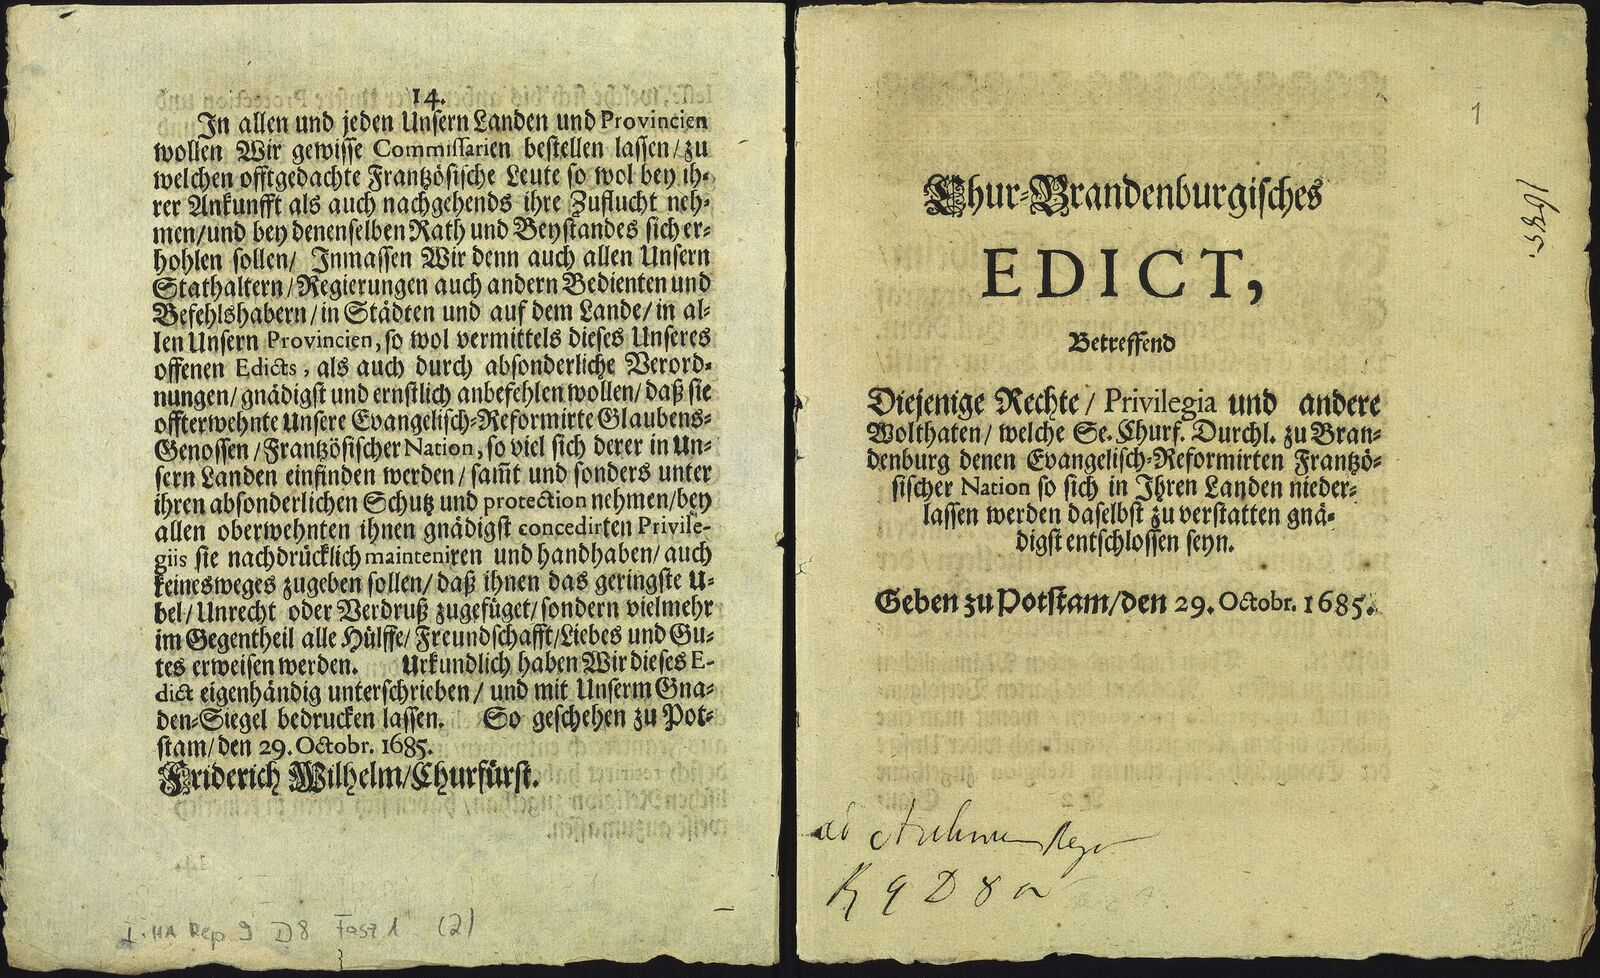 14.
In allen und jeden Unsern Landen und Provincien
wollen Wir gewisse Commissarien bestellen lassen/zu
welchen offtgedachte Frantzösische Leute so wol bey ih-
rer Ankunfft als auch nachgehends ihre Zuflucht neh-
men/und bey denenselben Rath und Beystandes sich er-
hohlen sollen/ Inmassen Wir denn auch allen Unsern
Stathaltern/Regierungen auch andern Bedienten und
Befehlshabern/in Städten und auf dem Lande/in al-
len Unsern Provincien, so wol vermittels dieses Unseres
offenen Edicts, als auch durch absonderliche Verord-
nungen/gnädigst und ernstlich anbefehlen wollen/daß sie
offterwehnte Unsere Evangelisch-Reformirte Glaubens-
Genossen/Frantzösischer Nation, so viel sich derer in Un-
sern Landen einfinden werden/ sam̃t und sonders unter
ihren absonderlichen Schutz und protection nehmen/bey
allen oberwehnten ihnen gnädigst concedirten Privile-
giis sie nachdrücklich mainteniren und handhaben/auch
keinesweges zugeben sollen/daß ihnen das geringste U-
bel/Unrecht oder Verdruß zugefüget/sondern vielmehr
im Gegentheil alle Hülffe/Freundschafft/Liebes und Gu-
tes erweisen werden. Urkundlich haben Wir dieses E-
dict eigenhändig unterschrieben/und mit Unserm Gna-
den-Siegel bedrucken lassen. So geschehen zu Pot-
stam/den 29. Octobr. 1685.
Friderich Wilhelm/Churfürst.
I. HA Rep 9 D8 Fasz 1 (2)
1
1685.
Chur-Brandenburgisches
EDICT,
Betreffend
Diejenige Rechte/ Privilegia und andere
Wolthaten/ welche Se. Churf. Durchl. zu Bran-
denburg denen Evangelisch-Reformirten Frantzö-
sischer Nation so sich in Ihren Landen nieder-
lassen werden daselbst zu verstatten gnä-
digst entschlossen seyn.
Geben zu Potstam/den 29. Octobr. 1685.
ad
R 9 D 8 a